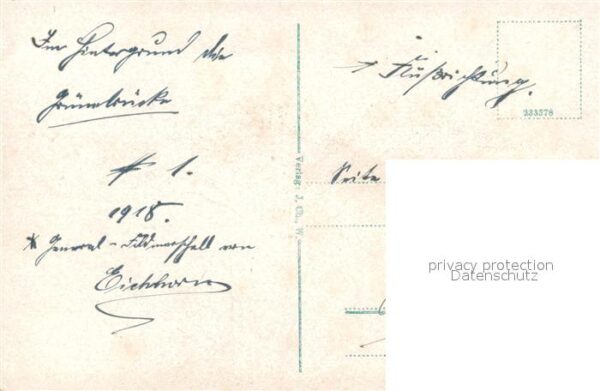 Im Hintergrund die
Grünebrücke
# 1.
1918.
* General-Feldmarschall von
Eichhorn
→ Flußrichtung.
233378
Verlag: J. Ch. W
Seite
privacy protection
Datenschutz